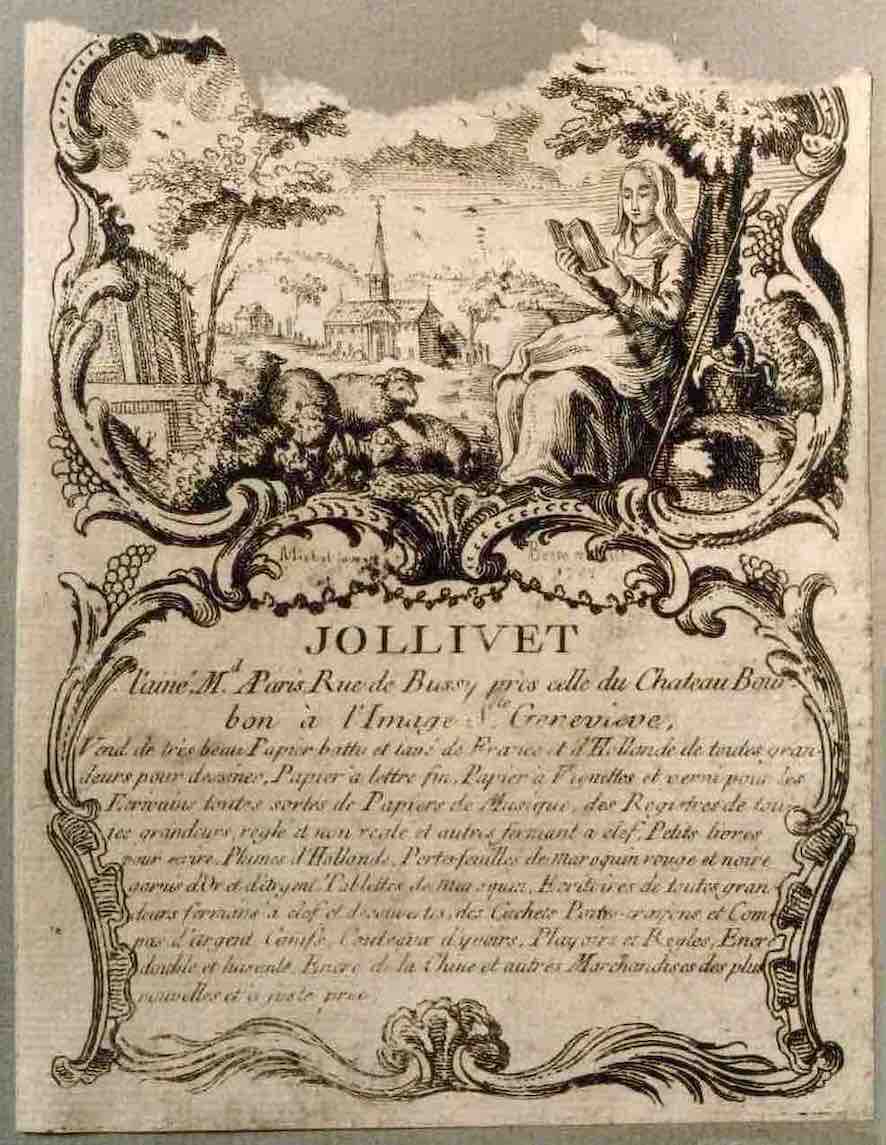 Michel
JOLLIVET
l'ainé M.d A Paris Rue de Bussy près celle du Chateau Bour-
bon à l'Image S.te Genevieve,
Vend de très beau Papier battu et lavé de France et d'Hollande de toutes gran-
deurs pour dessiner, Papier à lettre fin, Papier à Vignettes et verni pour les
Ecrivains toutes sortes de Papiers de Musique, des Registres de tou-
tes grandeurs, reglé et non reglé et autres fermant a clef, Petits livres
pour ecrire, Plumes d'Hollande, Porte-feuilles de maroquin rouge et noire
garnis d'Or et d'argent. Tablettes de maroquin, Ecritoires de toutes gran-
deurs fermans a clef et decouvertes, des Cachets Porte-crayons et Com-
pas d'argent Canifs, Couteaux d'yvoire, Playoirs et Regles, Encre
double et luisante, Encre de la Chine et autres Marchandises des plus
nouvelles et à juste prix